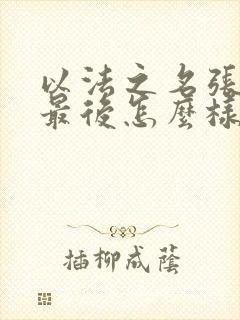 以法之名張
最後怎麼樣
插柳成蔭